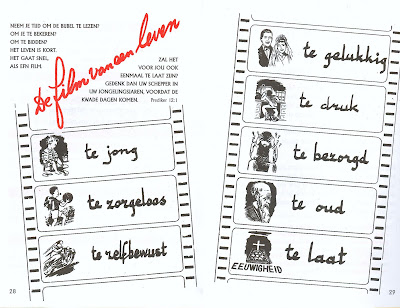 NEEM JE TIJD OM DE BIJBEL TE LEZEN?
OM JE TE BEKEREN?
OM TE BIDDEN?
HET LEVEN IS KORT.
HET GAAT SNEL,
ALS EEN FILM.
De film van een leven
ZAL HET
VOOR JOU OOK
EENMAAL TE LAAT ZIJN?
GEDENK DAN UW SCHEPPER IN
UW JONGELINGSJAREN, VOORDAT DE
KWADE DAGEN KOMEN. Prediker 12:1
te jong
te zorgeloos
te zelfbewust
28
te gelukkig
te druk
te bezorgd
te oud
te laat
EEUWIGHEID
29